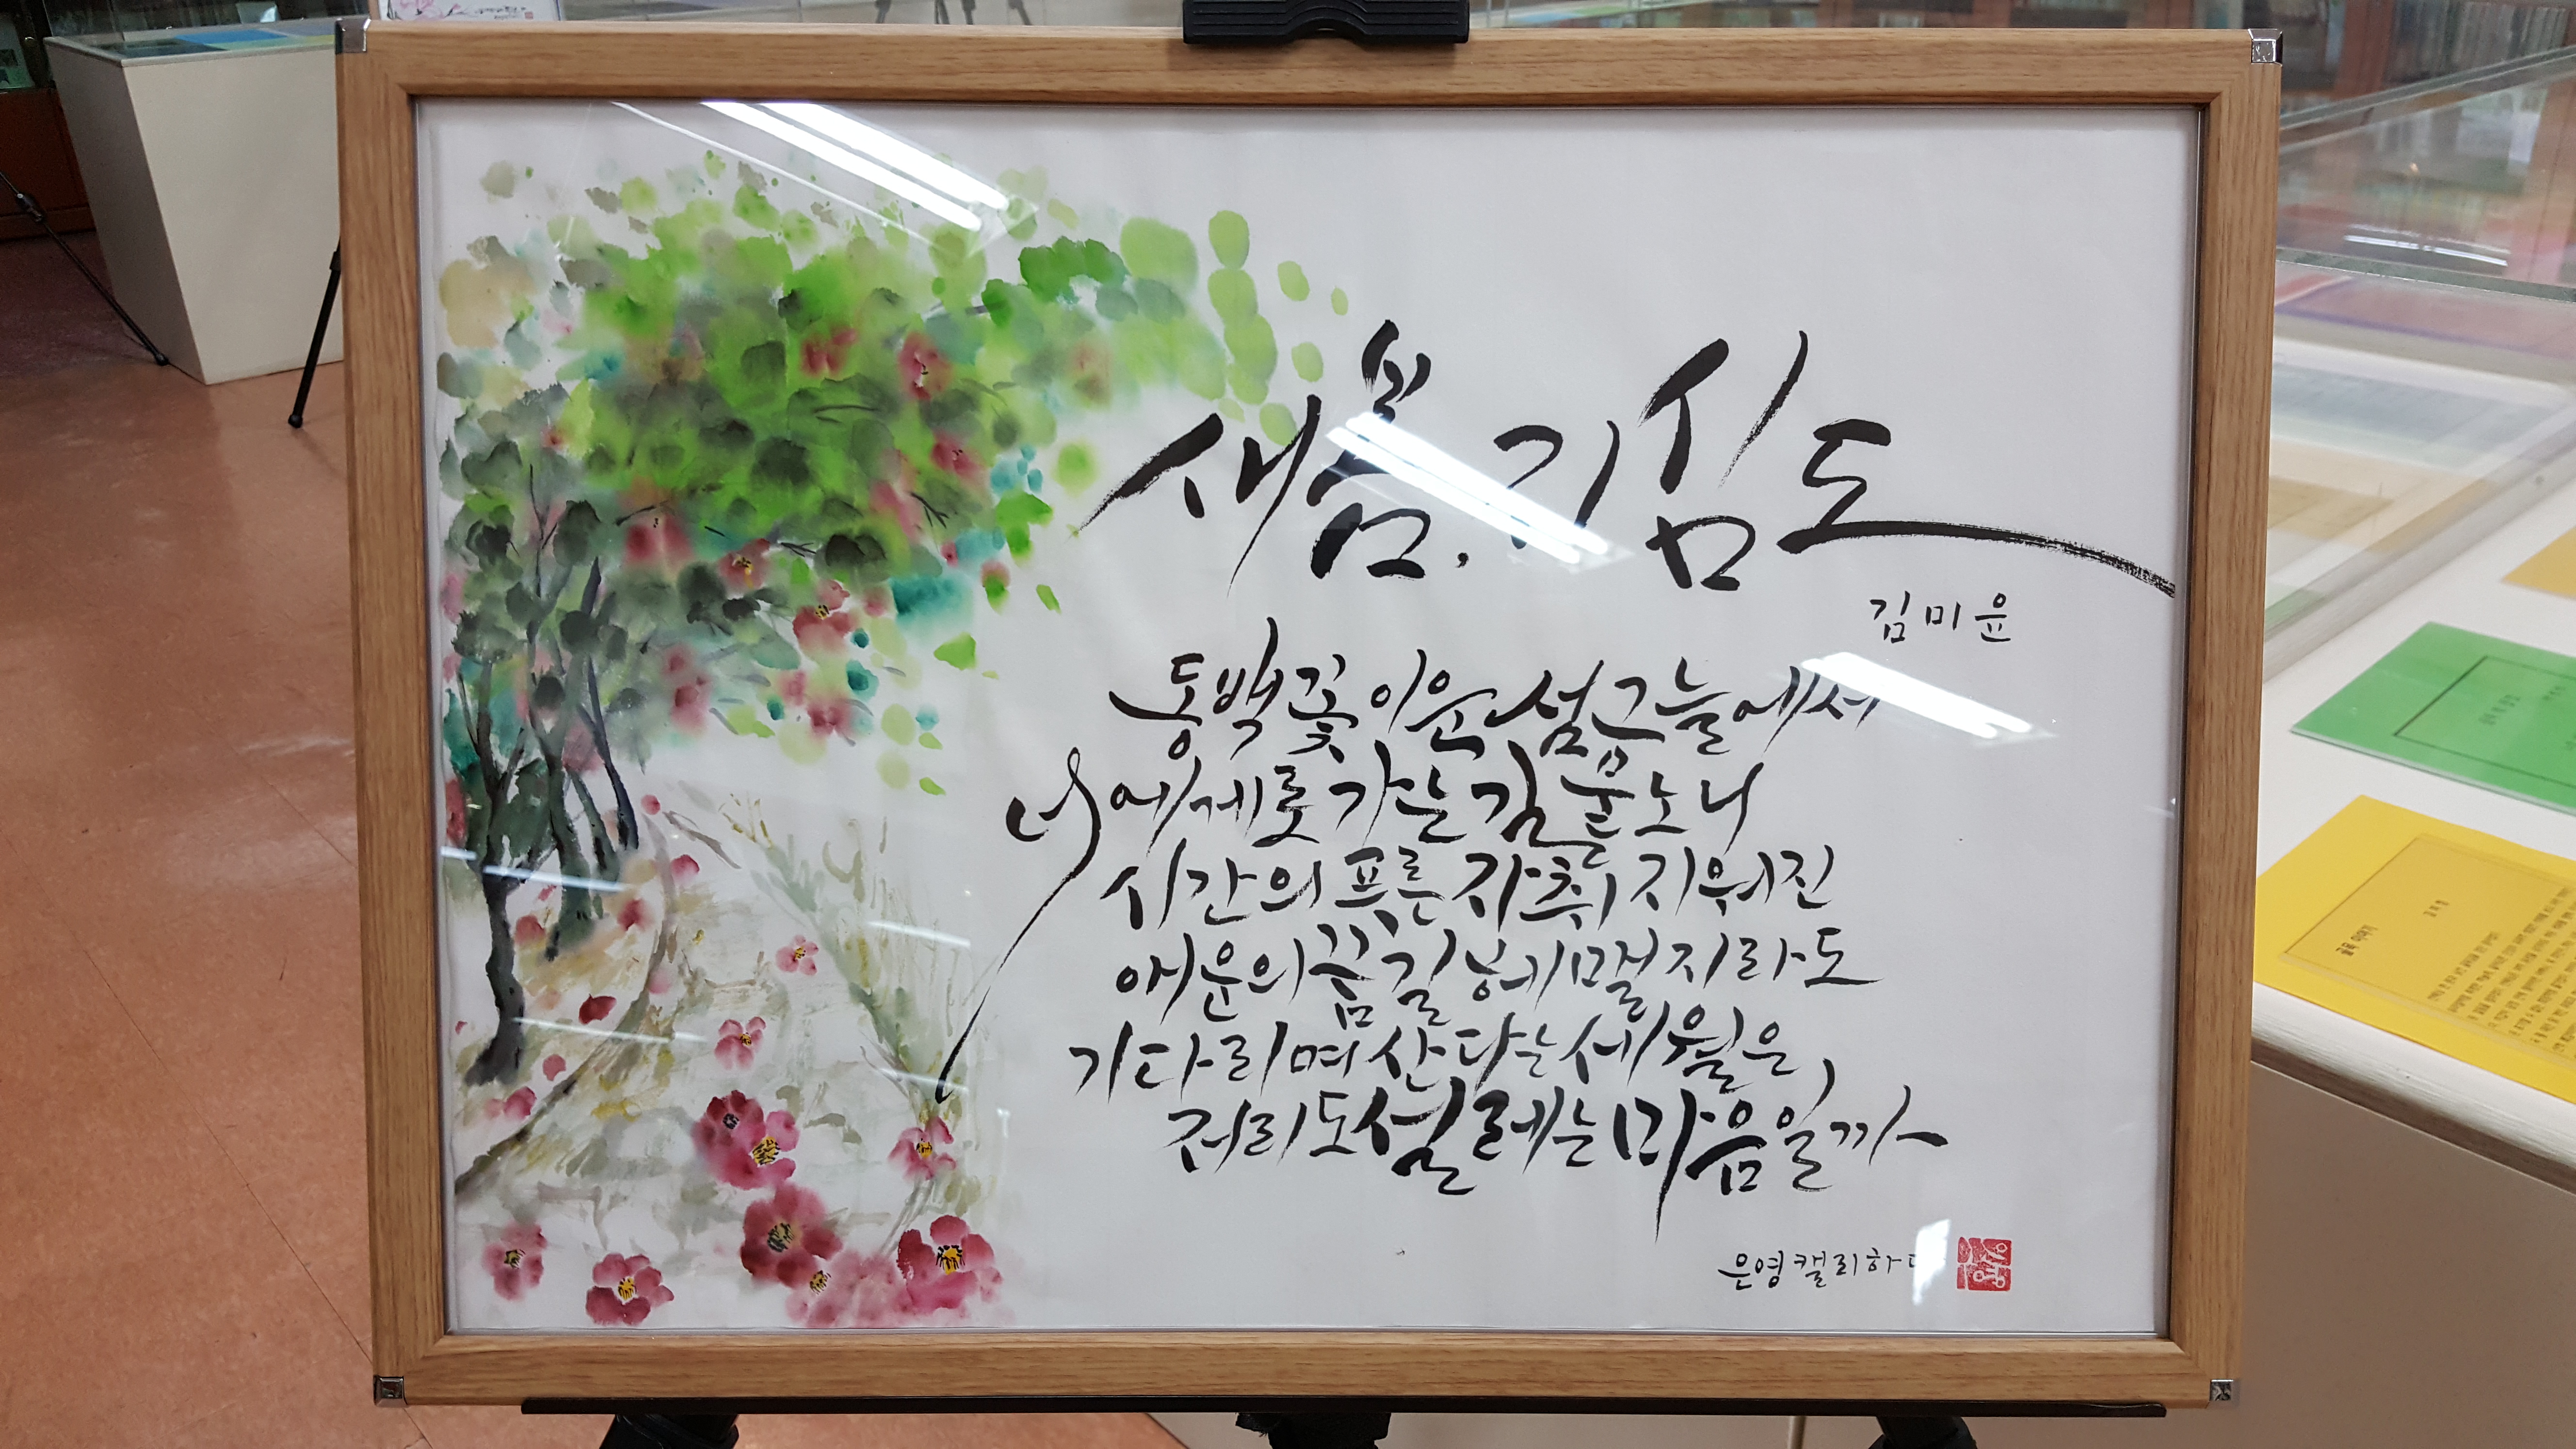 새봄, 지심도
김미윤
동백꽃 이운 섬 그늘에서
너에게롯 가는 길 묻노니
시간의 푸른 자취 지워진
애운의 꿈길 헤맬지라도
기다리며 산다는 세월은
저리도 설레는 마음일까
은영캘리하다